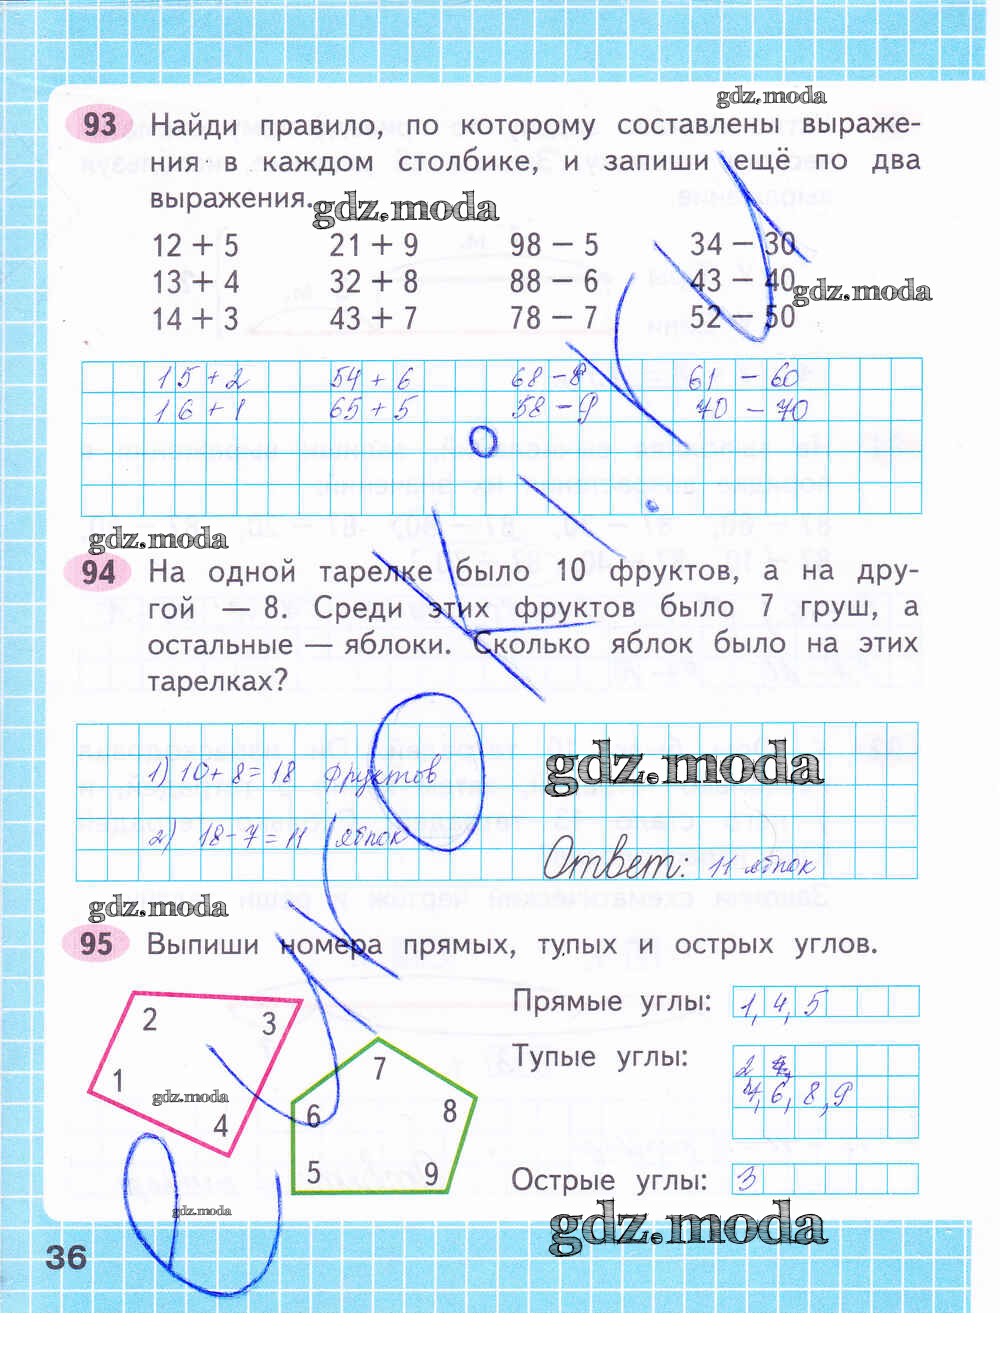 gdz.moda
93 Найди правило, по которому составлены выраже-
ния в каждом столбике, и запиши ещё по два
выражения.
gdz.moda
12 + 5 21 + 9 98 − 5 34 − 30
13 + 4 32 + 8 88 − 6 43 − 40
gdz.moda
14 + 3 43 + 7 78 − 7 52 − 50
15 + 2 54 + 6 68 − 8 61 − 60
16 + 1 65 + 5 58 − 9 70 − 70
gdz.moda
94 На одной тарелке было 10 фруктов, а на дру-
гой — 8. Среди этих фруктов было 7 груш, а
остальные — яблоки. Сколько яблок было на этих
тарелках?
gdz.moda
1) 10 + 8 = 18 фруктов
2) 18 − 7 = 11 яблок
Ответ: 11 яблок
gdz.moda
95 Выпиши номера прямых, тупых и острых углов.
Прямые углы: 1, 4, 5
Тупые углы: 2
7, 6, 8, 9
Острые углы: 3
2 3
1 4
7
6 8
5 9
gdz.moda
gdz.moda
gdz.moda
36